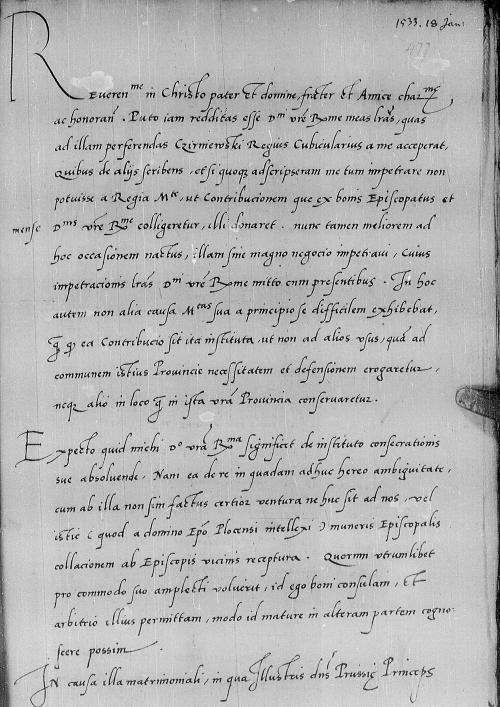 1533. 18 Jan:
477
Reueren^me in Christo pater et domine, frater et Amice char^me
ac honoran. Puto iam redditas esse D^ni vre R^me meas lras, quas
ad illam perferendas Czirniewski Regius Cubicularius a me acceperat,
Quibus de alijs scribens, etsi quoq adscripseram me tum impetrare non
potuisse a Regia M^te, ut Contribucionem que ex bonis Episcopatus et
mense D^nis vre R^me colligeretur, illi donaret. nunc tamen meliorem ad
hoc occasionem nactus, illam sine magno negocio impetraui, Cuius
impetracionis lras D^ni vre R^me mitto cum presentibus. In hoc
autem non alia causa M^tas sua a principio se difficilem exhibebat,
q q ea Contribucio sit ita instituta, ut non ad alios vsus, qua ad
communem istius Prouincie necessitatem et defensionem erogaretur,
neq alio in loco q in ista vra Prouincia conseruaretur.
Expecto quid michi D^o vra R^ma significet de instituto consecrationis
sue absoluende. Nam ea de re in quadam adhuc hereo ambiguitate,
cum ab illa non sim factus certior ventura ne huc sit ad nos, vel
istic (quod a domino Epo Plocensi intellexi) muneris Episcopalis
collacionem ab Episcopis vicinis receptura. Quorum utrumlibet
pro commodo suo amplecti voluerit, id ego boni consulam, Et
arbitrio illius permittam, modo id mature in alteram partem cogno-
scere possim.
In causa illa matrimoniali, in qua Illustris dns Prussię Princeps